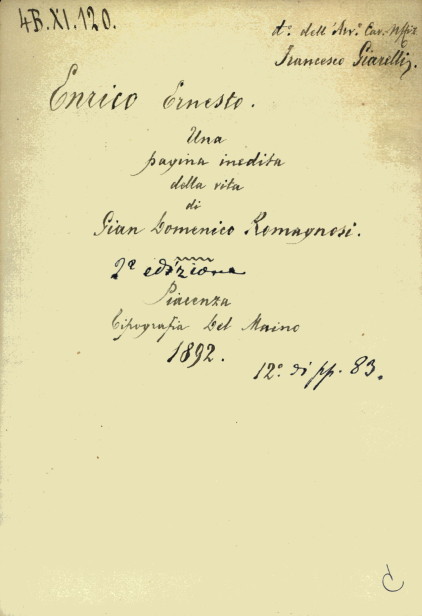 4B.XI.120.
d.° dell'Avv.° Cav. Uffiz.
Francesco Giarelli,
Enrico Ernesto.
Una
pagina inedita
della vita
di
Gian Domenico Romagnosi.
2ª edizione
Piacenza
Tipografia Del Maino
1892.
12° di pp. 83.